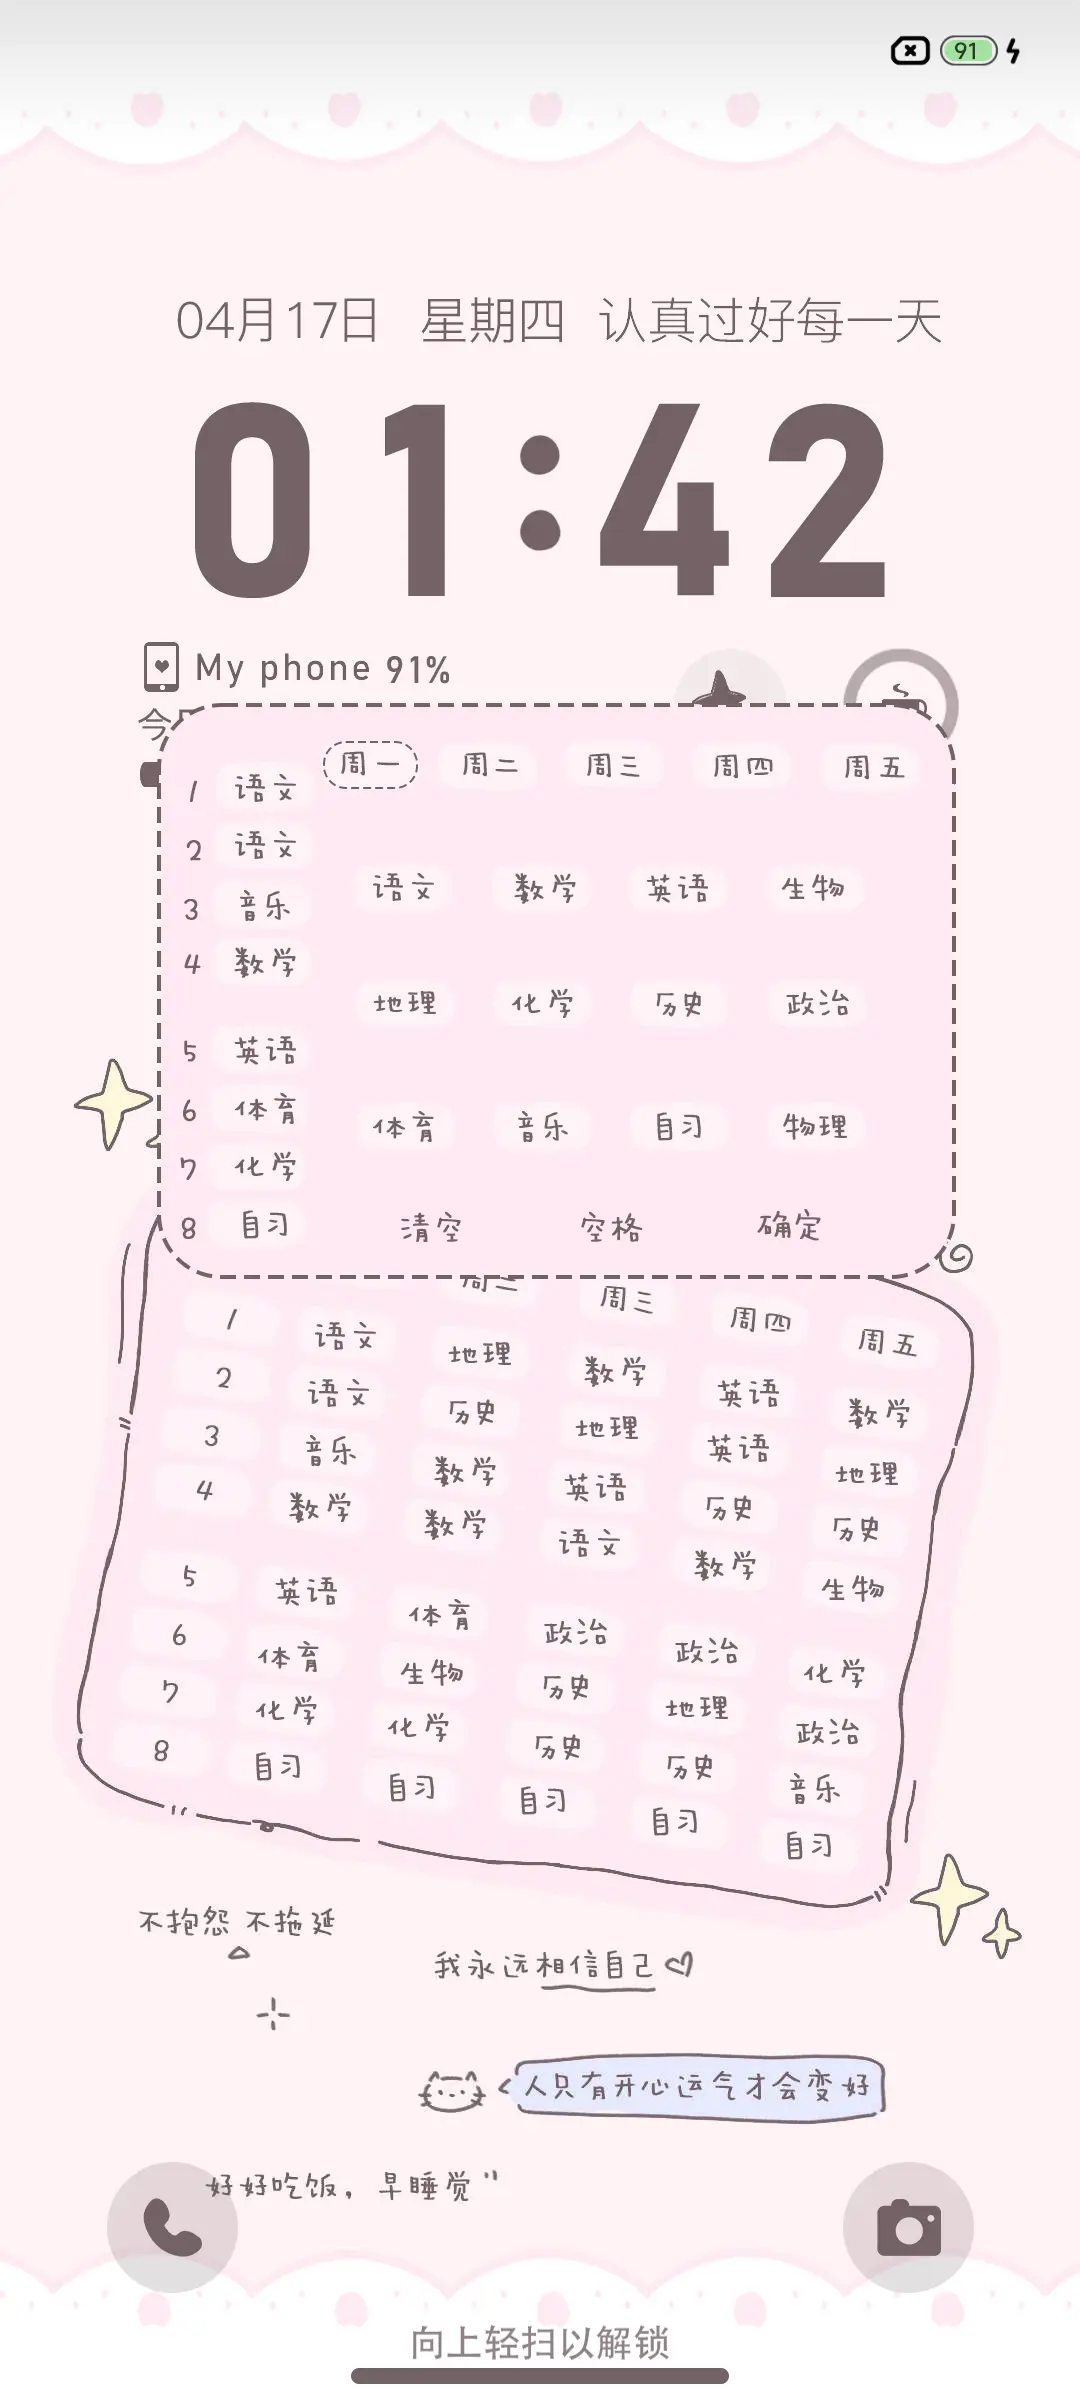 91
04月17日 星期四 认真过好每一天
01:42
My phone 91%
今
周一 周二 周三 周四 周五
1 语文
2 语文
语文 数学 英语 生物
3 音乐
4 数学
地理 化学 历史 政治
5 英语
6 体育
体育 音乐 自习 物理
7 化学
8 自习
清空 空格 确定
周三 周四 周五
1 语文 地理 数学 英语 数学
2 语文 历史 地理 英语 地理
3 音乐 数学 英语 历史 历史
4 数学 数学 语文 数学 生物
5 英语 体育 政治 政治 化学
6 体育 生物 历史 地理 政治
7 化学 化学 历史 历史 音乐
8 自习 自习 自习 自习 自习
不抱怨 不拖延
我永远相信自己
人只有开心运气才会变好
好好吃饭，早睡觉"
向上轻扫以解锁